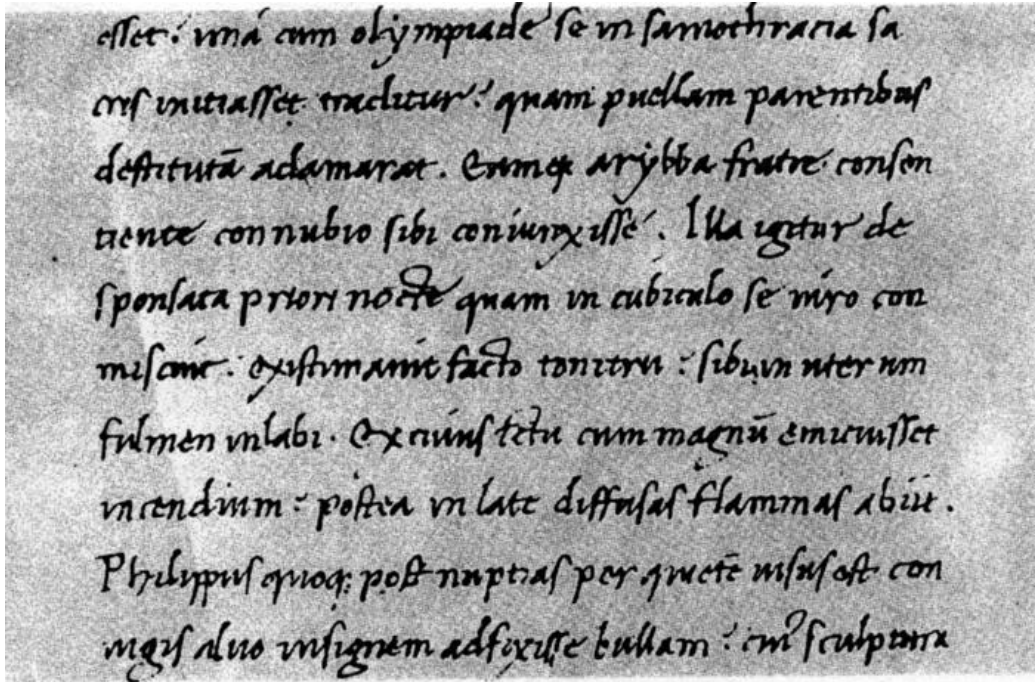 esset: unà cum olympiade se in samothracia sa
cris initiasset traditur: quam puellam parentibus
destitutā adamarat. Eamq; arybba fratre consen
tiente connubio sibi coniunxisse. Illa igitur de
sponsata priori nocte quam in cubiculo se viro con
miscuit: existimavit facto tonitru: sibi in uterum
fulmen inlabi. Ex cuius ictu cum magnū emicuisset
incendium: postea in late diffusas flammas abiit.
Philippus quoq; post nuptias per quietē visus est con
iugis alvo insignem adfixisse bullam: cui' sculptura